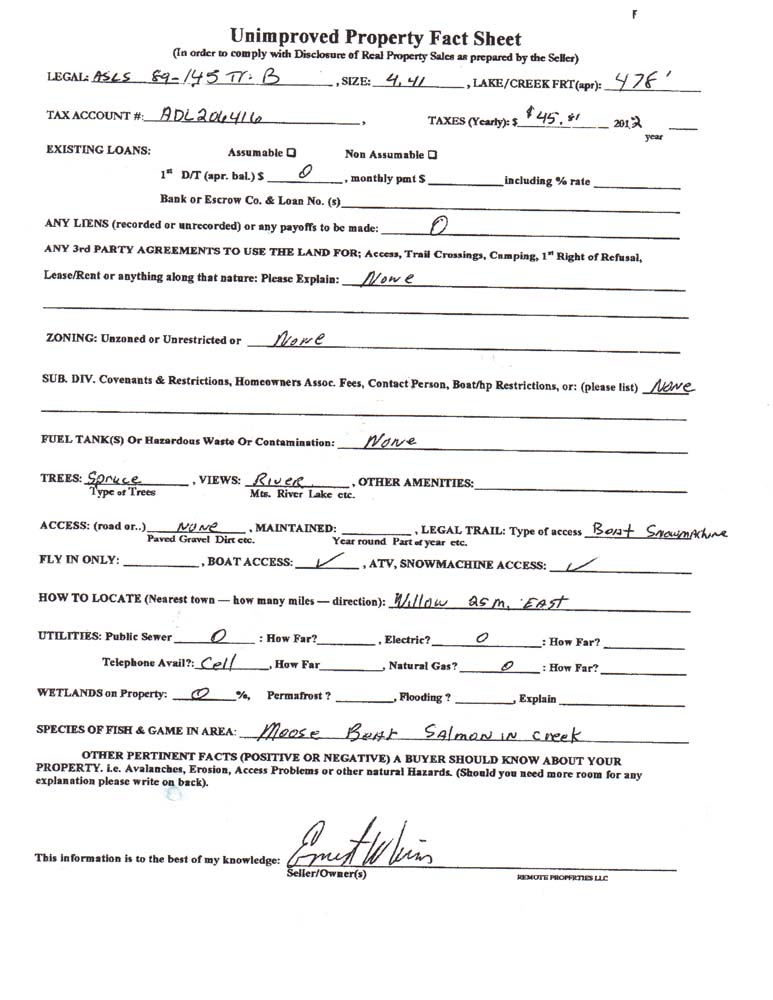 F
Unimproved Property Fact Sheet
(In order to comply with Disclosure of Real Property Sales as prepared by the Seller)
LEGAL: ASLS 89-145 Tr. B, SIZE: 4.41, LAKE/CREEK FRT(apr): 478'
TAX ACCOUNT #: ADL206416, TAXES (Yearly): $ $45.81 2012
year
EXISTING LOANS: Assumable ☐ Non Assumable ☐
1st D/T (apr. bal.) $ 0, monthly pmt $ including % rate
Bank or Escrow Co. & Loan No. (s)
ANY LIENS (recorded or unrecorded) or any payoffs to be made: 0
ANY 3rd PARTY AGREEMENTS TO USE THE LAND FOR; Access, Trail Crossings, Camping, 1st Right of Refusal,
Lease/Rent or anything along that nature: Please Explain: None
ZONING: Unzoned or Unrestricted or None
SUB. DIV. Covenants & Restrictions, Homeowners Assoc. Fees, Contact Person, Boat/hp Restrictions, or: (please list) None
FUEL TANK(S) Or Hazardous Waste Or Contamination: None
TREES: Spruce, VIEWS: River, OTHER AMENITIES:
Type of Trees Mts. River Lake etc.
ACCESS: (road or..) None, MAINTAINED: , LEGAL TRAIL: Type of access Boat Snowmachine
Paved Gravel Dirt etc. Year round Part of year etc.
FLY IN ONLY: , BOAT ACCESS: ✓, ATV, SNOWMACHINE ACCESS: ✓
HOW TO LOCATE (Nearest town — how many miles — direction): Willow 25 m. EAST
UTILITIES: Public Sewer 0 : How Far? , Electric? 0 : How Far?
Telephone Avail?: Cell, How Far , Natural Gas? 0 : How Far?
WETLANDS on Property: 0 %, Permafrost ? , Flooding ? , Explain
SPECIES OF FISH & GAME IN AREA: Moose Bear Salmon in creek
OTHER PERTINENT FACTS (POSITIVE OR NEGATIVE) A BUYER SHOULD KNOW ABOUT YOUR
PROPERTY. i.e. Avalanches, Erosion, Access Problems or other natural Hazards. (Should you need more room for any
explanation please write on back).
This information is to the best of my knowledge:
Seller/Owner(s)
REMOTE PROPERTIES LLC